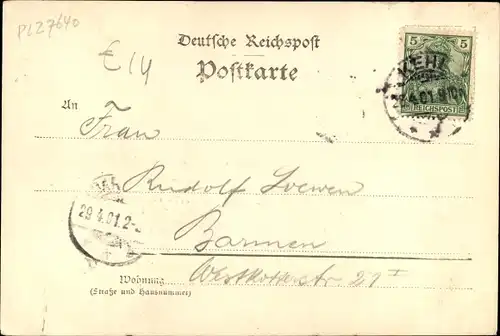 PLZ7640
£14
Deutsche Reichspost
Postkarte
5 5
REICHSPOST
KEHL
29.4.01.
An
Frau
Rudolf Loewen
29.4.01.2-
Barmen
Westkotterstr 21 I
Wohnung
(Straße und Hausnummer)